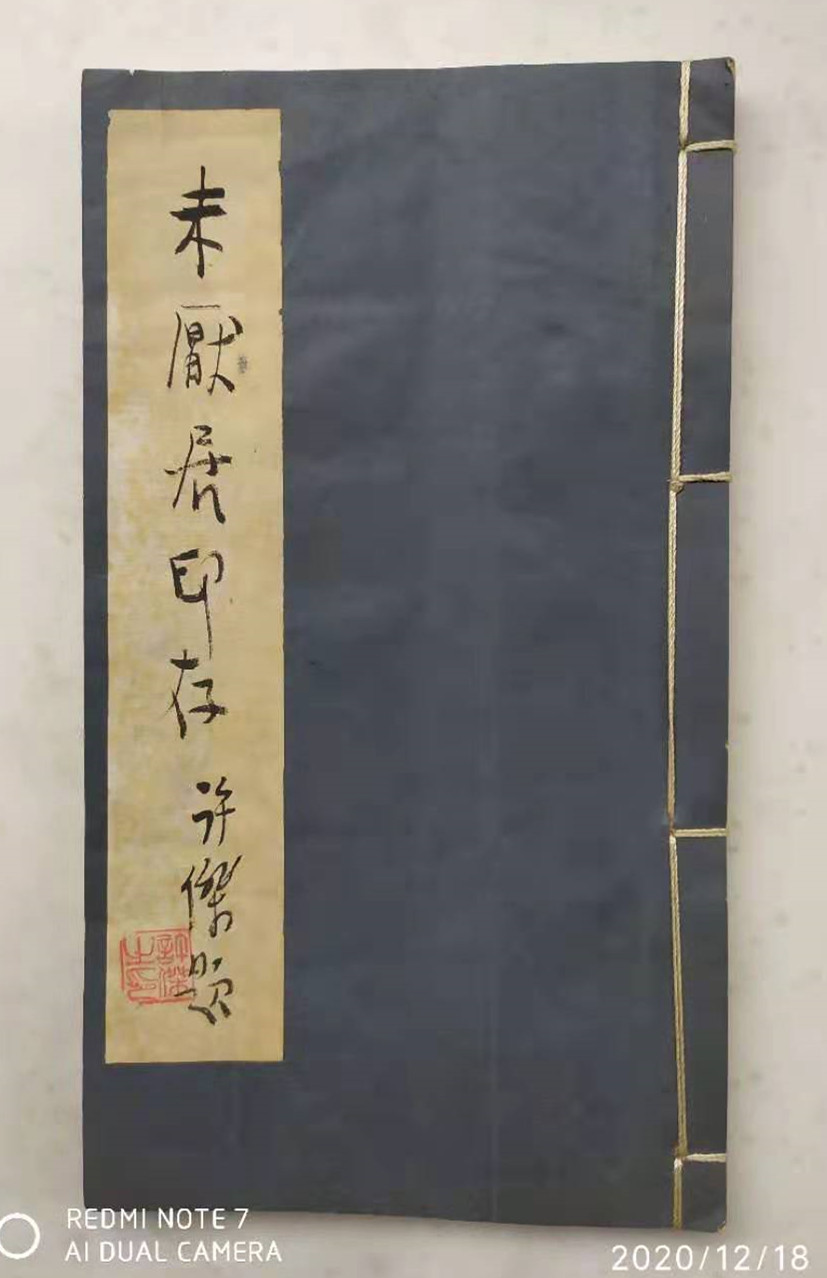 未厭居印存
许傑題
許傑之印
REDMI NOTE 7
AI DUAL CAMERA
2020/12/18